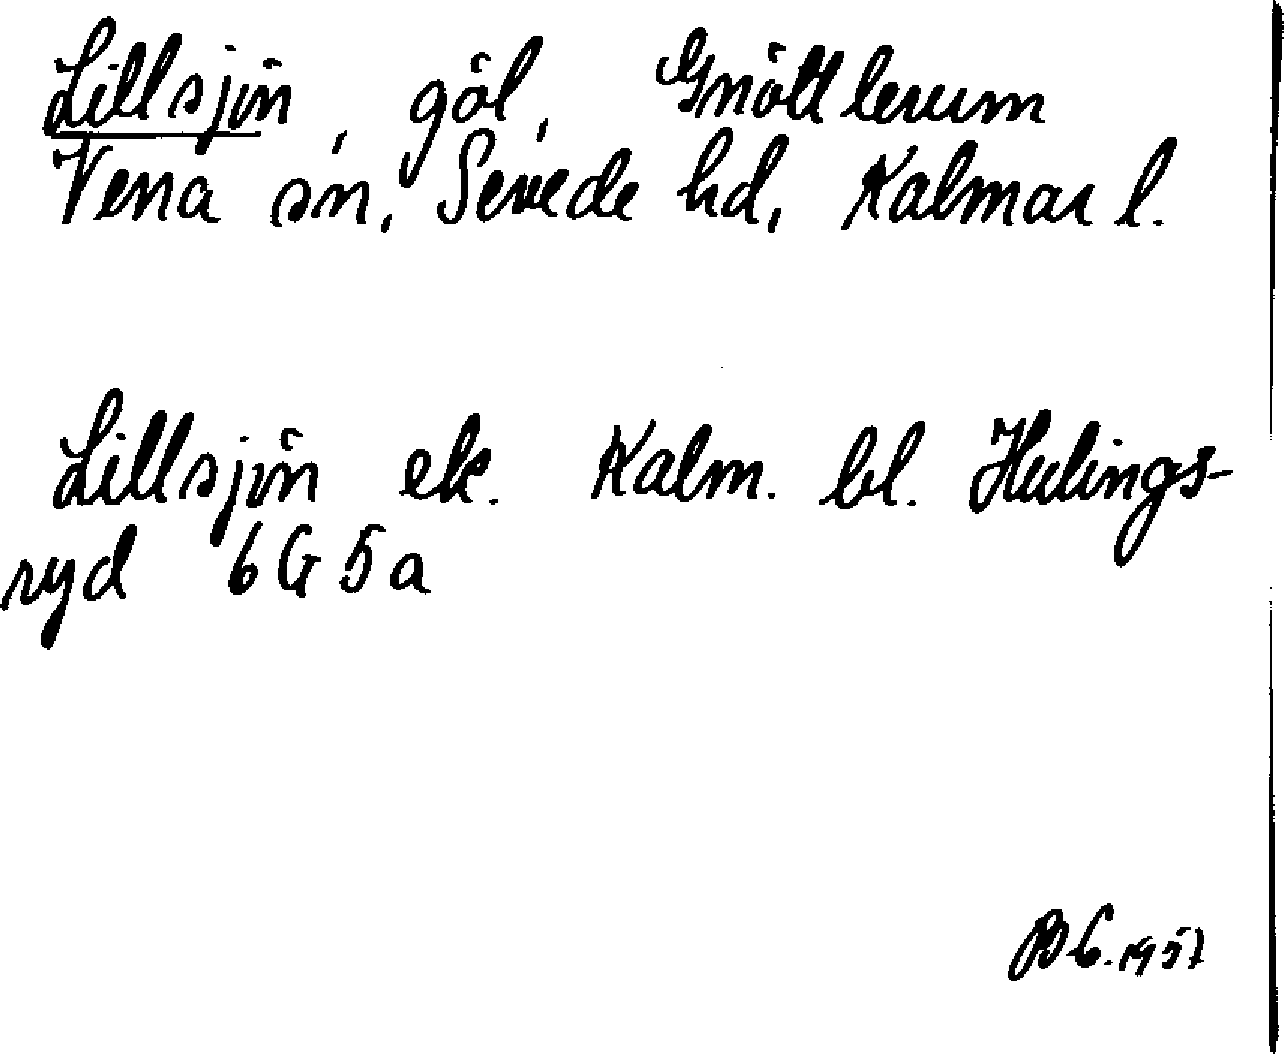 Lillsjön, göl, Gnöttlerum
Vena sn, Sevede hd, Kalmar l.
Lillsjön ek. Kalm. bl. Hulings-
ryd 6G5a
1957